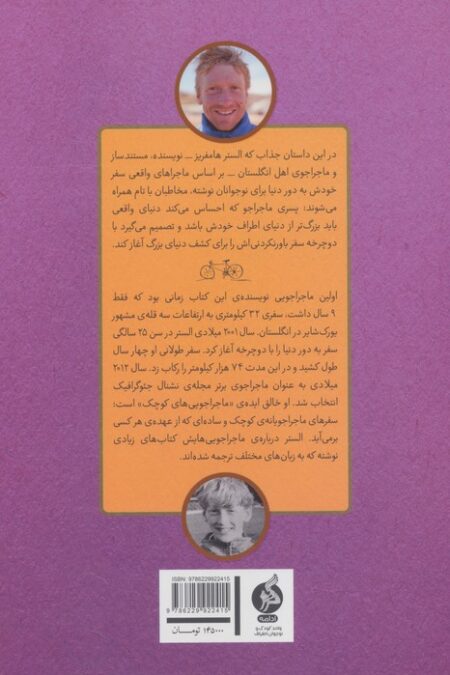 در این داستان جذاب که الستر هامفریز ــ نویسنده، مستندساز
و ماجراجوی اهل انگلستان ــ بر اساس ماجراهای واقعی سفر
خودش به دور دنیا برای نوجوانان نوشته، مخاطبان با تام همراه
می‌شوند: پسری ماجراجو که احساس می‌کند دنیای واقعی
باید بزرگ‌تر از دنیای اطراف خودش باشد و تصمیم می‌گیرد با
دوچرخه سفر باورنکردنی‌اش را برای کشف دنیای بزرگ آغاز کند.
اولین ماجراجویی نویسنده‌ی این کتاب زمانی بود که فقط
۹ سال داشت، سفری ۳۲ کیلومتری به ارتفاعات سه قله‌ی مشهور
یورک‌شایر در انگلستان. سال ۲۰۰۱ میلادی الستر در سن ۲۵ سالگی
سفر به دور دنیا را با دوچرخه آغاز کرد. سفر طولانی او چهار سال
طول کشید و در این مدت ۷۴ هزار کیلومتر را رکاب زد. سال ۲۰۱۲
میلادی به عنوان ماجراجوی برتر مجله‌ی نشنال جئوگرافیک
انتخاب شد. او خالق ایده‌ی «ماجراجویی‌های کوچک» است:
سفرهای ماجراجویانه‌ی کوچک و ساده‌ای که از عهده‌ی هر کسی
برمی‌آید. الستر درباره‌ی ماجراجویی‌هایش کتاب‌های زیادی
نوشته که به زبان‌های مختلف ترجمه شده‌اند.
ISBN: 9786229922415
9 786229 922415
۱۴۵۰۰۰ تومـــان
ادامه
واحد کودک و
نوجوان اطراف